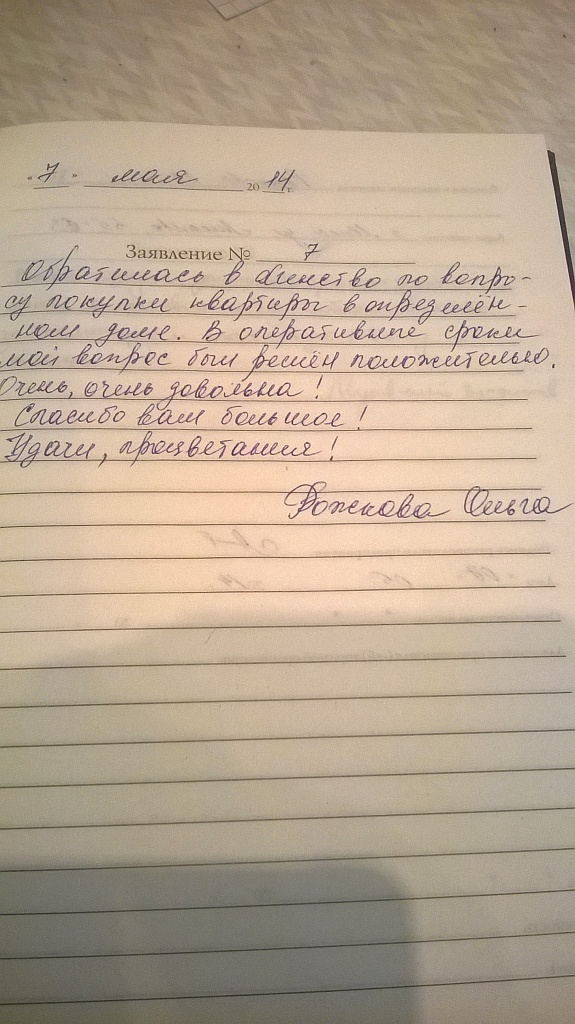 « 7 » мая 2014 г.
Заявление № 7
Обратилась в по вопро-
су покупки квартиры в определён-
ном доме. В оперативные сроки
мой вопрос был решён положительно.
Очень, очень довольна!
Спасибо вам большое!
Удачи, процветания!
Ольга